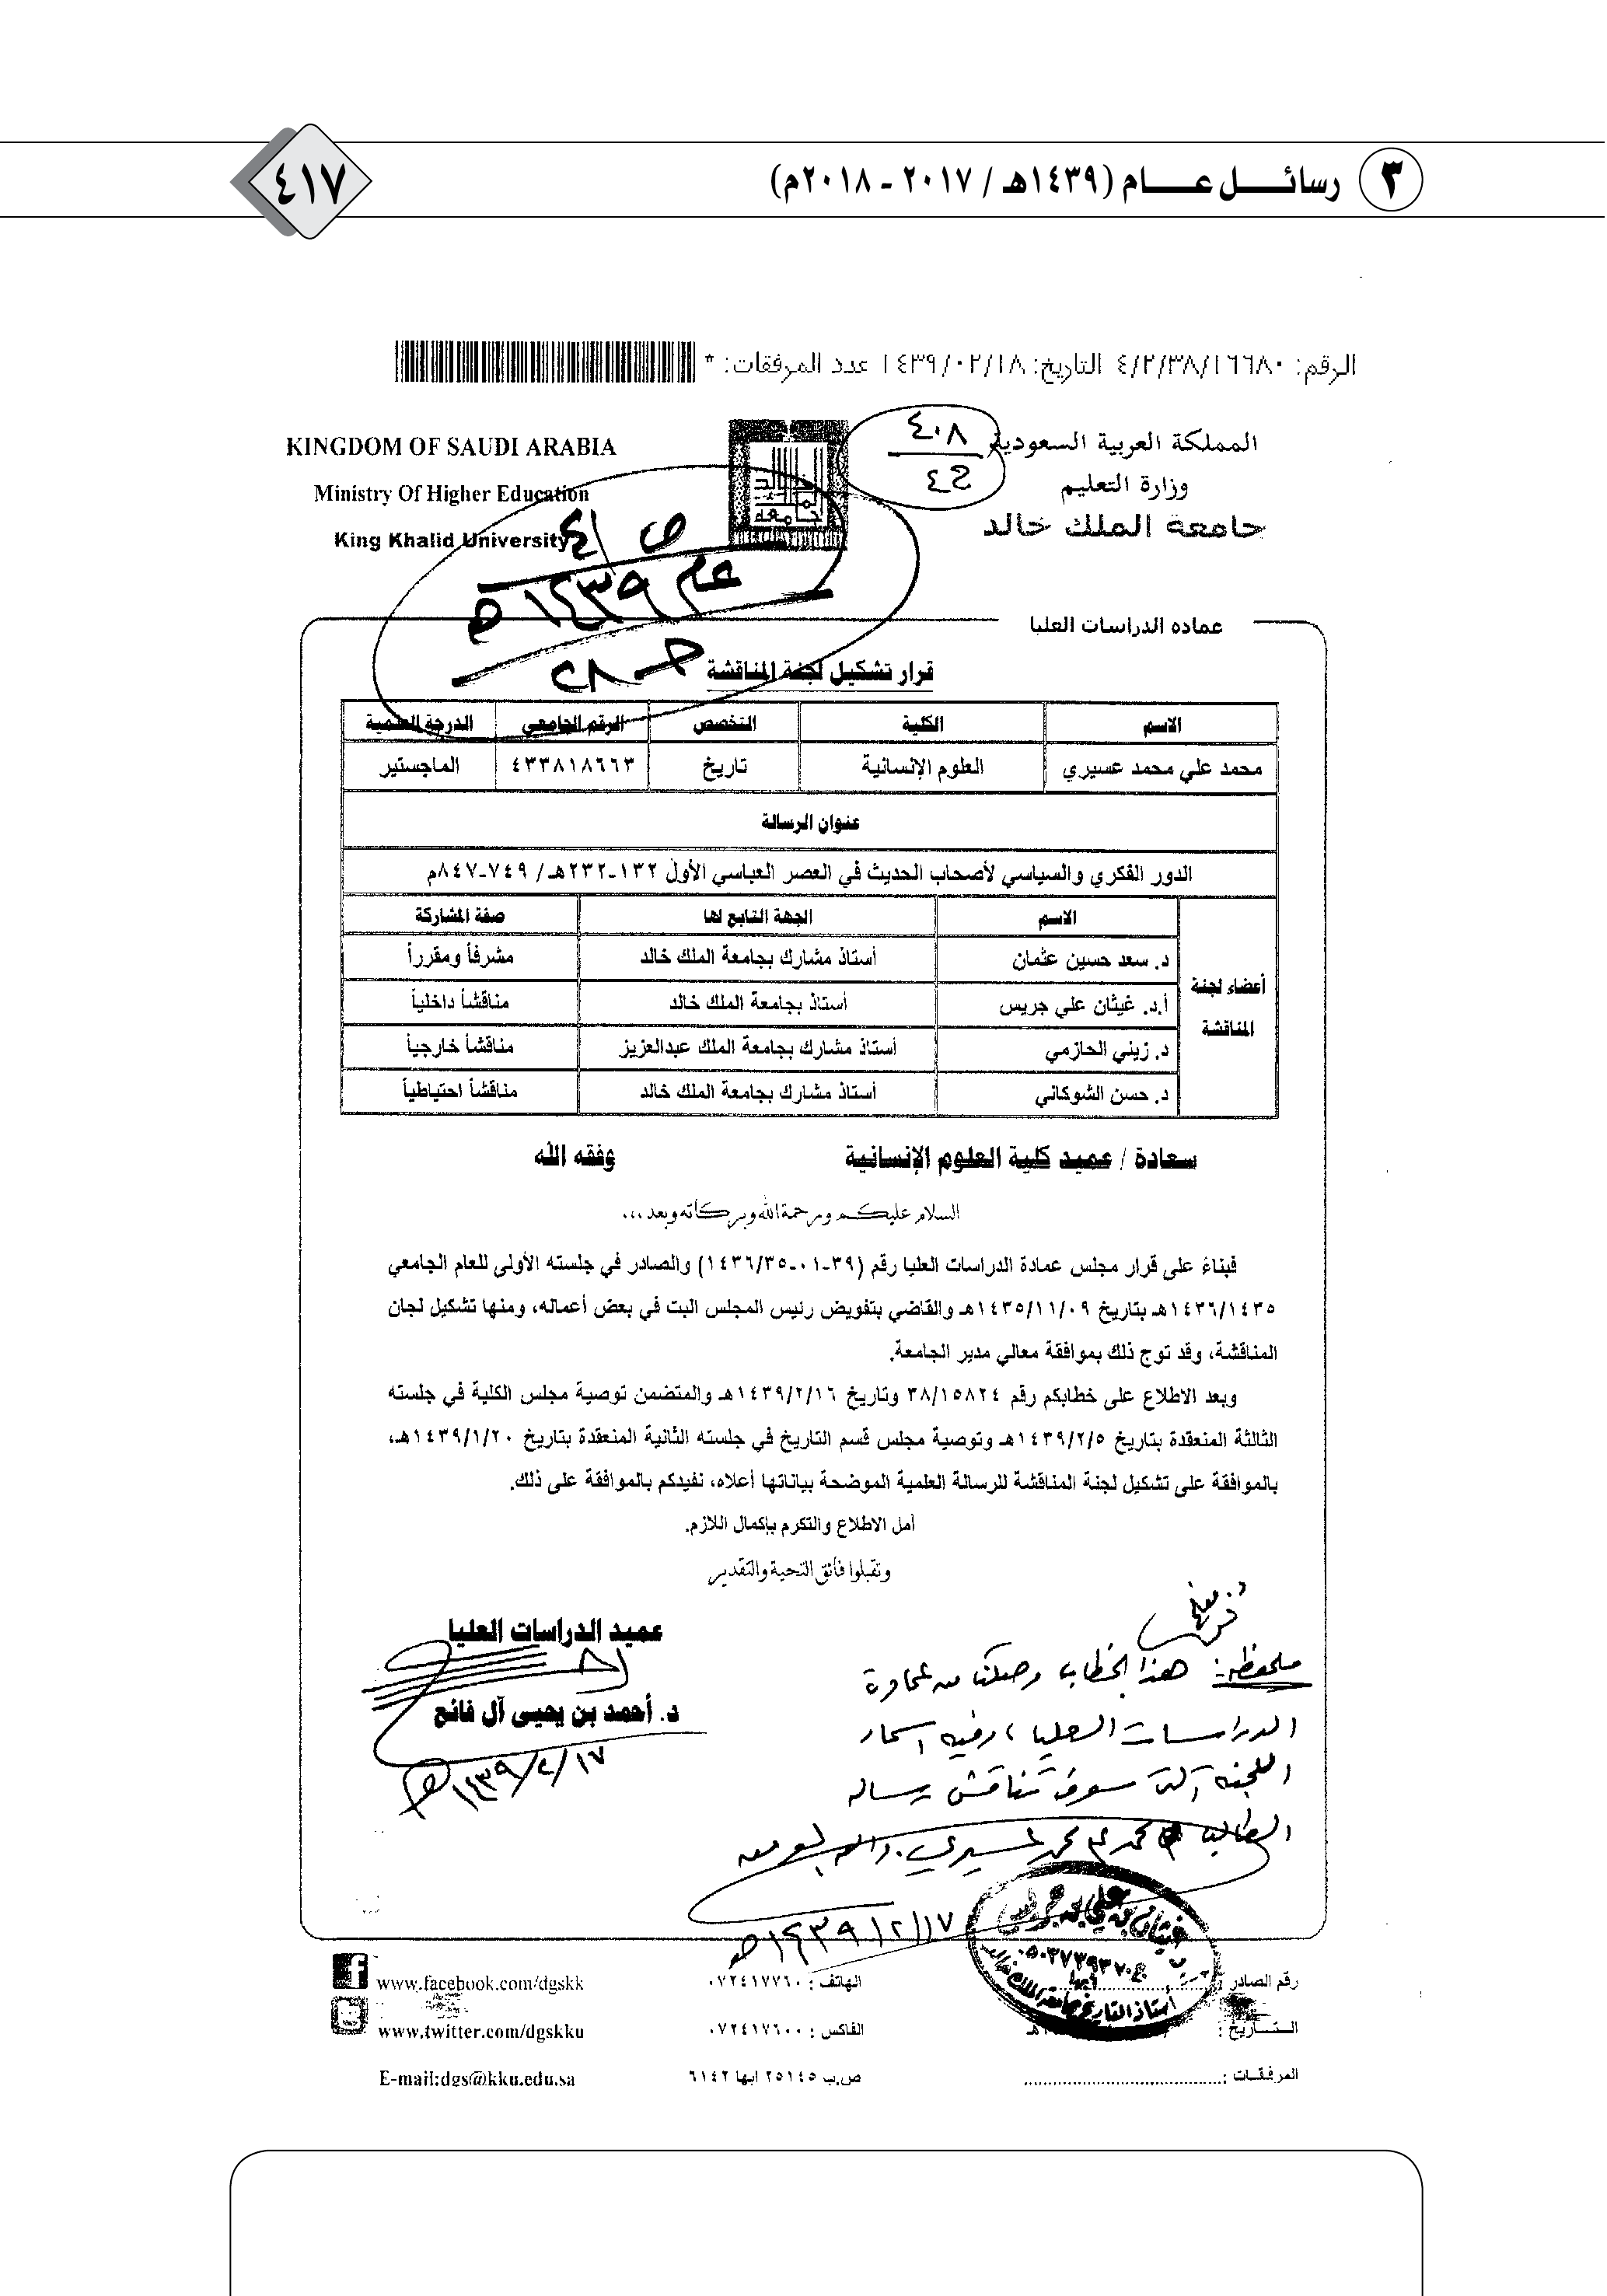 ٣ رسائل عام (١٤٣٩هـ / ٢٠١٧ - ٢٠١٨م)
٤١٧
الرقم: ٤/٢/٣٨/١٦٦٨٠ التاريخ: ١٤٣٩/٠٢/١٨ عدد المرفقات: *
المملكة العربية السعودية
وزارة التعليم
جامعة الملك خالد
٤٠٨
KINGDOM OF SAUDI ARABIA
Ministry Of Higher Education
King Khalid University
١٤٣٩هـ
عماده الدراسات العليا
قرار تشكيل لجنة المناقشة
الاسم الكلية التخصص الرقم الجامعي الدرجة العلمية
محمد علي محمد عسيري العلوم الإنسانية تاريخ ٤٣٣٨١٨٦٦٣ الماجستير
عنوان الرسالة
الدور الفكري والسياسي لأصحاب الحديث في العصر العباسي الأول ١٣٢-٢٣٢هـ/ ٧٤٩-٨٤٧م
أعضاء لجنة المناقشة
الاسم الجهة التابع لها صفة المشاركة
د. سعد حسين عثمان أستاذ مشارك بجامعة الملك خالد مشرفاً ومقرراً
أ.د. غيثان علي جريس أستاذ بجامعة الملك خالد مناقشاً داخلياً
د. زيني الحازمي أستاذ مشارك بجامعة الملك عبدالعزيز مناقشاً خارجياً
د. حسن الشوكاني أستاذ مشارك بجامعة الملك خالد مناقشاً احتياطياً
سعادة / عميد كلية العلوم الإنسانية وفقه الله
السلام عليكم ورحمة الله وبركاته وبعد،،،
فبناءً على قرار مجلس عمادة الدراسات العليا رقم (٣٩-٠١-١٤٣٦/٣٥) والصادر في جلسته الأولى للعام الجامعي
١٤٣٦/١٤٣٥هـ بتاريخ ١٤٣٥/١١/٠٩هـ والقاضي بتفويض رئيس المجلس البت في بعض أعماله، ومنها تشكيل لجان
المناقشة، وقد توج ذلك بموافقة معالي مدير الجامعة.
وبعد الاطلاع على خطابكم رقم ٣٨/١٥٨٢٤ وتاريخ ١٤٣٩/٢/١٦هـ والمتضمن توصية مجلس الكلية في جلسته
الثالثة المنعقدة بتاريخ ١٤٣٩/٢/٥هـ وتوصية مجلس قسم التاريخ في جلسته الثانية المنعقدة بتاريخ ١٤٣٩/١/٢٠هـ،
بالموافقة على تشكيل لجنة المناقشة للرسالة العلمية الموضحة بياناتها أعلاه، نفيدكم بالموافقة على ذلك.
أمل الاطلاع والتكرم بإكمال اللازم.
وتقبلوا فائق التحية والتقدير
عميد الدراسات العليا
د. أحمد بن يحيى آل فائع
١٤٣٩/٢/١٧هـ
ملحوظة: هذا الخطاب وصلنا من عمادة
الدراسات العليا، وفيه أسماء
اللجنة التي سوف تناقش رسالة
الطالب محمد علي محمد عسيري.
١٤٣٩/٢/١٧هـ
غيثان بن علي بن جريس
أبها
أستاذ التاريخ بجامعة الملك خالد
رقم الصادر :
التاريخ :
المرفقات :
الهاتف : ٠٧٢٤١٧٧٦٠
الفاكس : ٠٧٢٤١٧٦٠٠
ص.ب ٢٥١٤٥ ابها ٦١٤٢
www.facebook.com/dgskk
www.twitter.com/dgskku
E-mail:dgs@kku.edu.sa